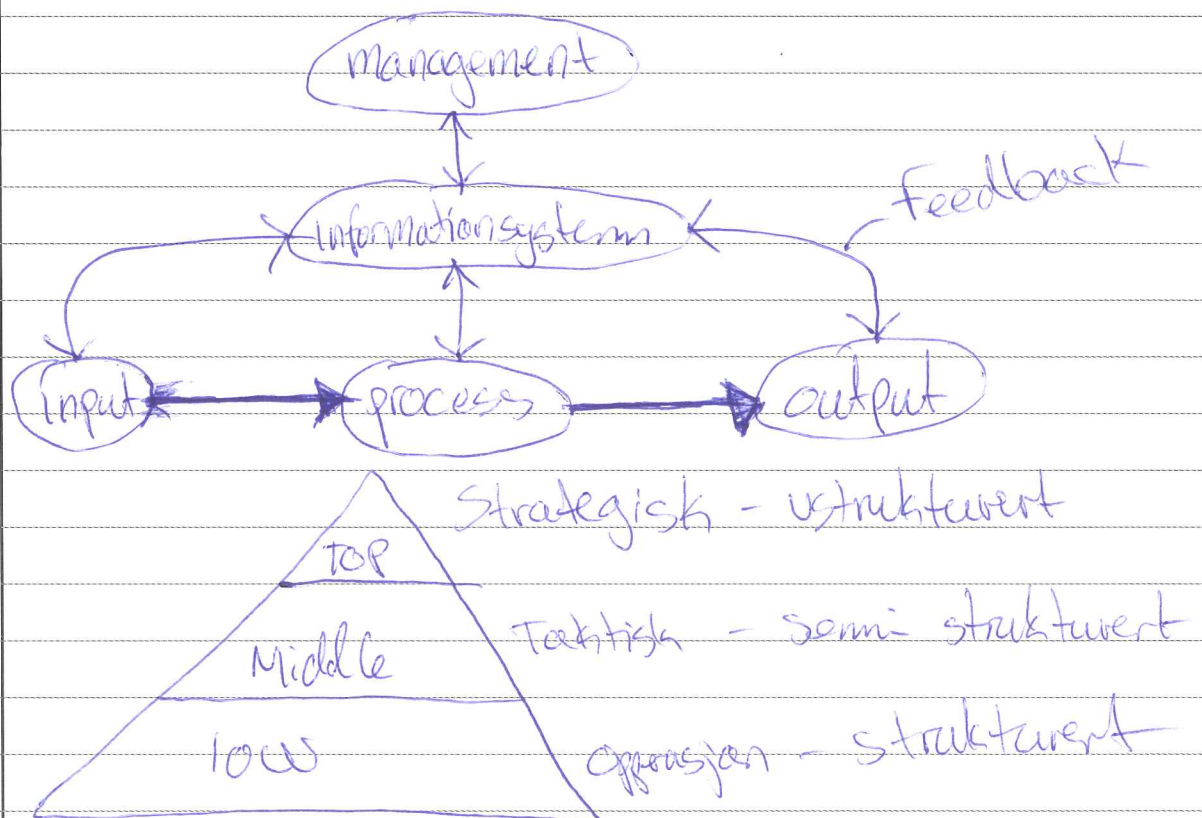 management
Feedback
informationsystem
input process output
Strategisk - ustrukturert
TOP
Taktisk - semi strukturert
Middle
low
opprasjon - strukturert